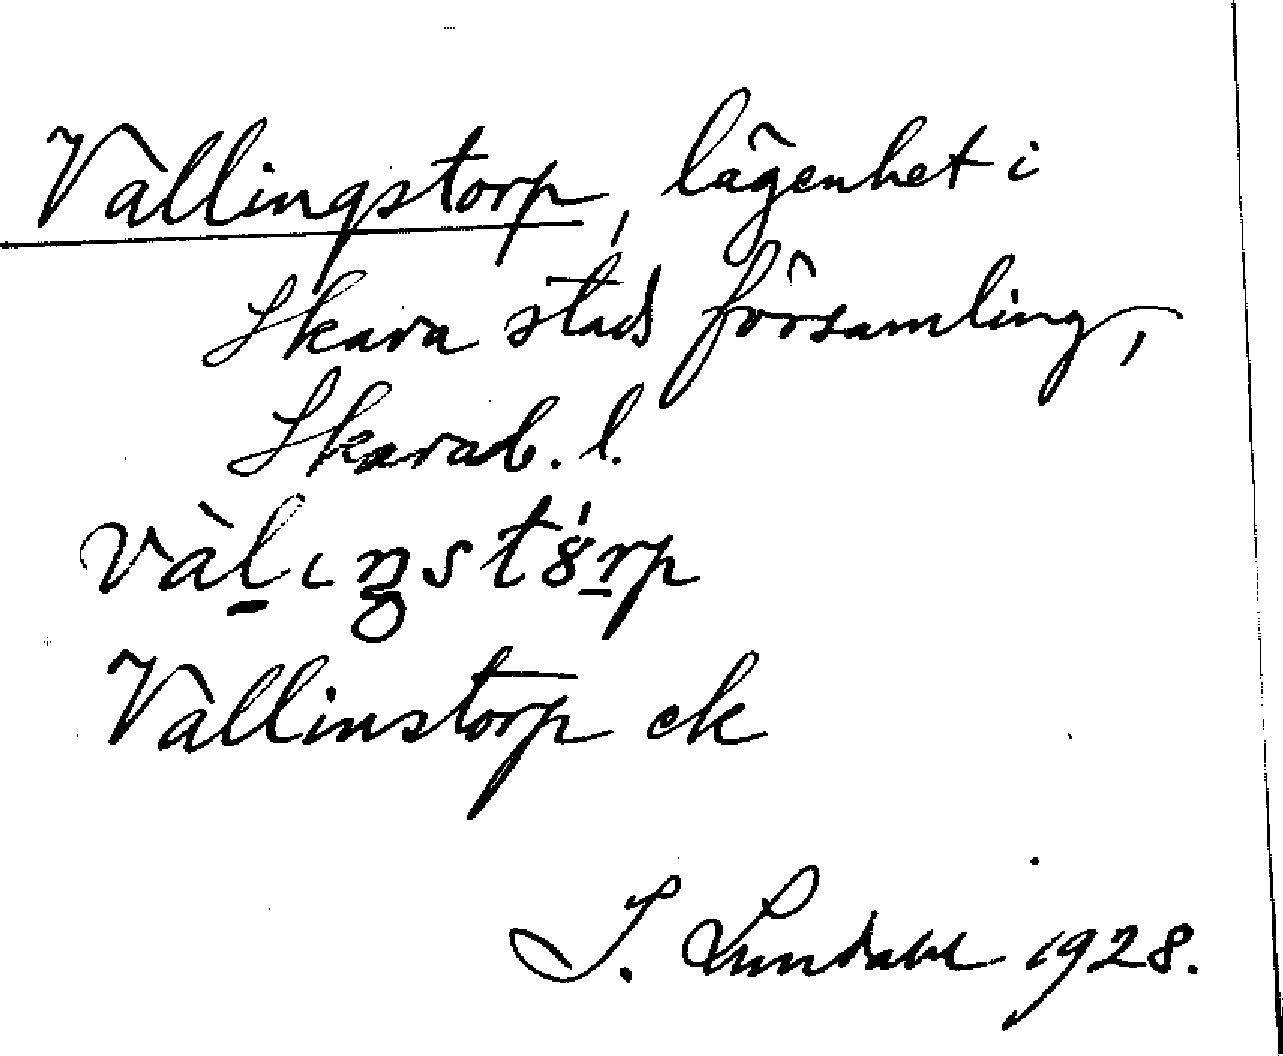 Vällingstorp, lägenhet i
Skara stads församling,
Skarab. l.
vàlıŋstȣ́rp
Vällinstorp ek
I. Lundahl 1928.